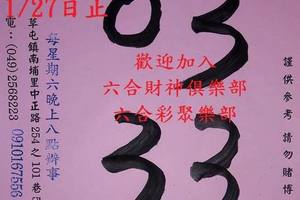 1/27日止
03
33
歡迎加入
六合財神俱樂部
六合彩聚樂部
謹供參考 請勿賭博
每星期六晚上八點辦事
草屯鎮南埔里中正路254之101巷
電：(049)2568223 0910167556